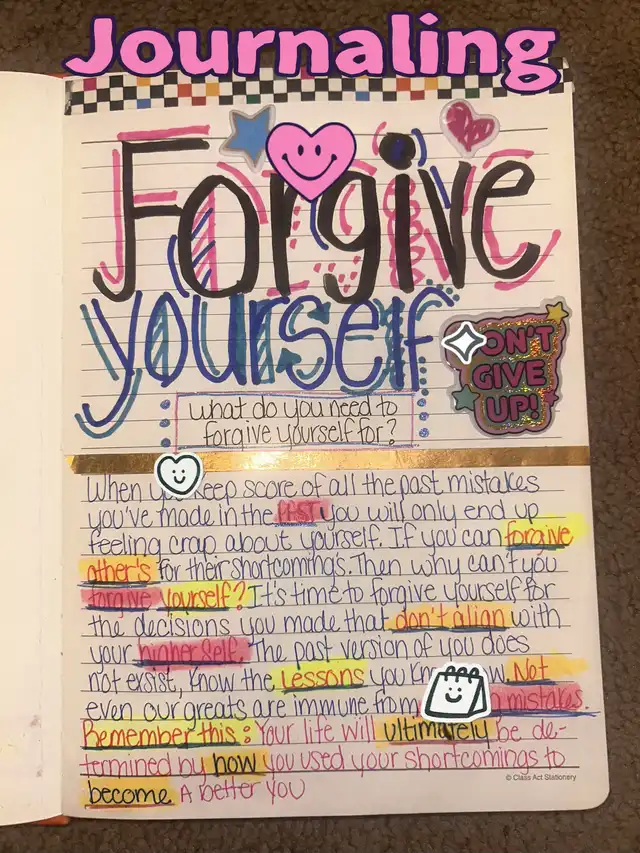 Journaling
Forgive
yourself
DON'T
GIVE
UP!
what do you need to
forgive yourself for?
When you keep score of all the past mistakes
you've made in the PAST you will only end up
feeling crap about yourself. If you can forgive
other's for their shortcoming's. Then why can't you
forgive yourself? It's time to forgive yourself for
the decisions you made that don't align with
your higher self. The past version of you does
not exsist, know the Lessons you know now. Not
even our greats are immune from mistakes.
Remember this: Your life will ultimately be de-
termined by how you used your shortcomings to
become A better you
© Class Act Stationery